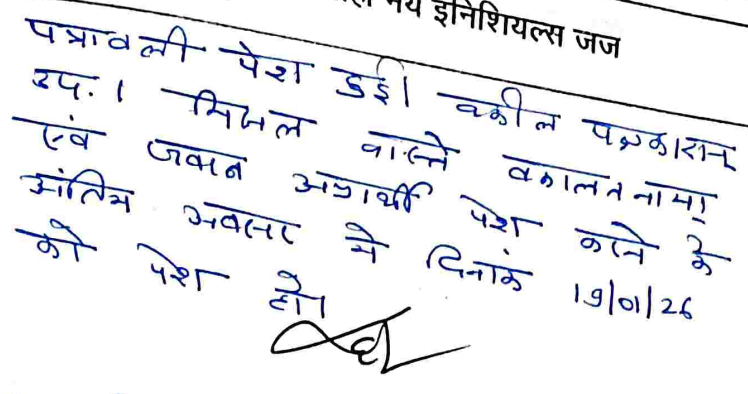 मय इनिशियल्स जज
पत्रावली पेश हुई। वकील पक्षकारान्
उप.। मिसल वास्ते वकालतनामा
एवं जवाब अप्रार्थी पेश करने के
अंतिम अवसर में दिनांक 19/01/26
को पेश हो।